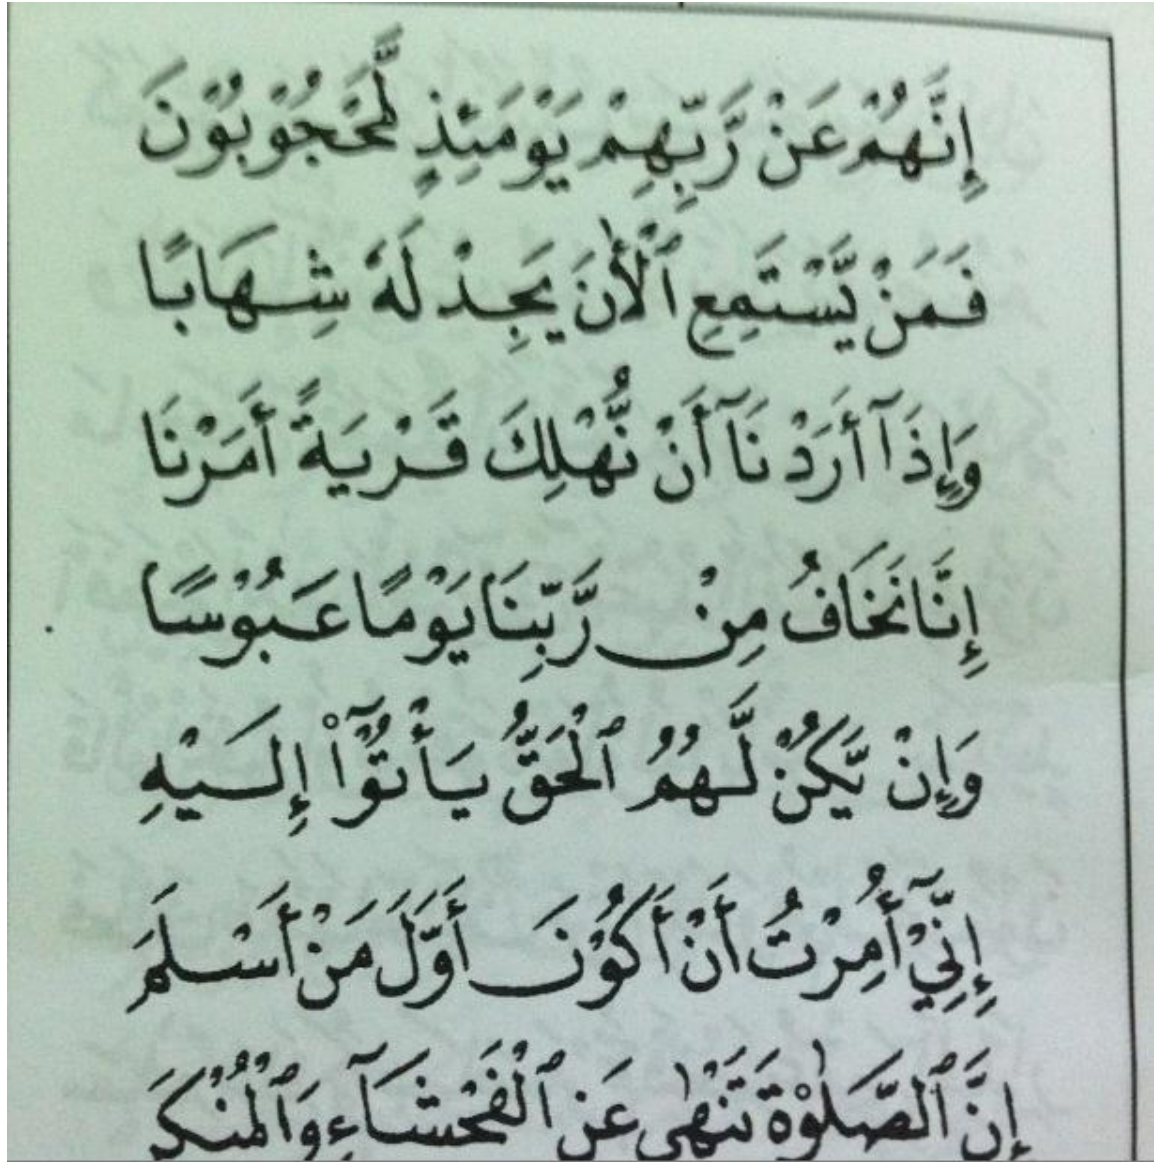 إِنَّهُمْ عَنْ رَّبِّهِمْ يَوْمَئِذٍ لَّمَحْجُوْبُوْنَ
فَمَنْ يَّسْتَمِعِ ٱلْأٰنَ يَجِدْ لَهٗ شِهَابًا
وَإِذَآ أَرَدْنَآ أَنْ نُّهْلِكَ قَرْيَةً أَمَرْنَا
إِنَّا نَخَافُ مِنْ رَّبِّنَا يَوْمًا عَبُوْسًا
وَإِنْ يَّكُنْ لَّهُمُ ٱلْحَقُّ يَأْتُوْٓا۟ إِلَيْهِ
إِنِّيْٓ أُمِرْتُ أَنْ أَكُوْنَ أَوَّلَ مَنْ أَسْلَمَ
إِنَّ ٱلصَّلٰوةَ تَنْهٰى عَنِ ٱلْفَحْشَآءِ وَٱلْمُنْكَرِ